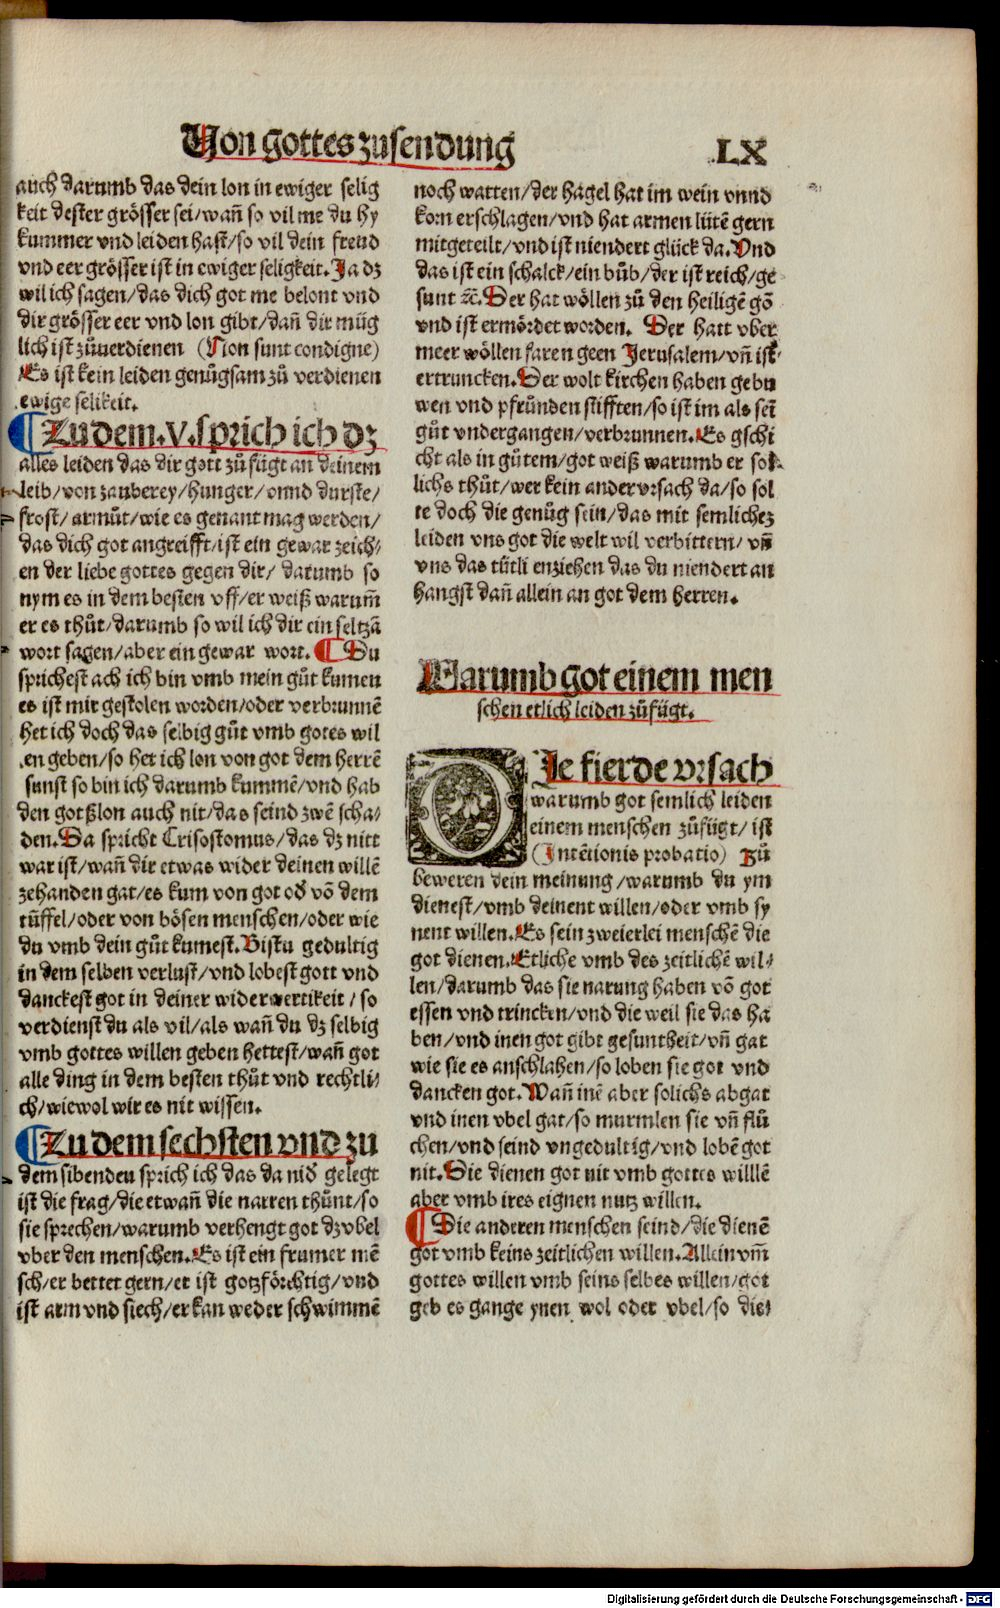 Von gottes zusendung
LX
auch darumb das dein lon in ewiger selig
keit dester grösser sei/wañ so vil me du hy
kummer vnd leiden hast/so vil dein freud
vnd eer grösser ist in ewiger seligkeit. Ja dz
wil ich sagen/das dich got me belont vnd
dir grösser eer vnd lon gibt/dañ dir müg
lich ist zůuerdienen (Non sunt condigne)
Es ist kein leiden genůgsam zů verdienen
ewige selikeit.
¶Zu dem.v.sprich ich dz
alles leiden das dir gott zůfügt an deinem
leib/von zauberey/hunger/vnnd durste/
frost/armůt/wie es genant mag werden/
das dich got angreifft/ist ein gewar zeich/
en der liebe gottes gegen dir/ darumb so
nym es in dem besten vff/er weiß warum̃
er es thůt/darumb so wil ich dir ein seltzã
wort sagen/aber ein gewar wort. ¶Du
sprichest ach ich bin vmb mein gůt kumen
es ist mir gestolen worden/oder verbrunnẽ
het ich doch das selbig gůt vmb gotes wil
len geben/so het ich lon von got dem herrẽ
sunst so bin ich darumb kummẽ/vnd hab
den gotßlon auch nit/das seind zwẽ scha/
den.Da spricht Crisostomus/das dz nitt
war ist/wañ dir etwas wider deinen willẽ
zehanden gat/es kum von got od̕ võ dem
tüffel/oder von bösen menschen/oder wie
du vmb dein gůt kumest.Bistu gedultig
in dem selben verlust/vnd lobest gott vnd
danckest got in deiner widerwertikeit/so
verdienst du als vil/als wañ du dz selbig
vmb gottes willen geben hettest/wañ got
alle ding in dem besten thůt vnd rechtli/
ch/wiewol wir es nit wissen.
¶Zu dem sechsten vnd zu
dem sibenden sprich ich das da nid̕ gelegt
ist die frag/die etwañ die narren thůnt/so
sie sprechen/warumb verhengt got dz vbel
vber den menschen.Es ist ein frumer mẽ
sch/er bettet gern/er ist gotzförchtig/vnd
ist arm vnd siech/er kan weder schwimmẽ
noch watten/der hagel hat im wein vnnd
korn erschlagen/vnd hat armen lütẽ gern
mitgeteilt/vnd ist niendert glück da.Vnd
das ist ein schalck/ein bůb/der ist reich/ge
sunt ꝛc̃.Der hat wöllen zů den heiligẽ gõ
vnd ist ermördet worden. Der hatt vber
meer wöllen faren geen Jerusalem/vñ ist
ertruncken.Der wolt kirchen haben gebu
wen vnd pfrůnden stifften/so ist im als sei
gůt vndergangen/verbrunnen.Es gschi
cht als in gůtem/got weiß warumb er sol
lichs thůt/wer kein ander vrsach da/so sol
te doch die genůg sein/das mit semlichez
leiden vns got die welt wil verbittern/vñ
vns das tütli enziehen das du niendert an
hangst dañ allein an got dem herren.
Warumb got einem men
schen etlich leiden zůfügt.
DIe fierde vrsach
warumb got semlich leiden
einem menschen zůfügt/ist
(Intẽtionis probatio) Zů
beweren dein meinung/warumb du ym
dienest/vmb deinent willen/oder vmb sy
nent willen.Es sein zweierlei menschẽ die
got dienen.Etliche vmb des zeitlichẽ wil/
len/darumb das sie narung haben võ got
essen vnd trincken/vnd die weil sie das ha
ben/vnd inen got gibt gesuntheit/vñ gat
wie sie es anschlahen/so loben sie got vnd
dancken got.Wañ inẽ aber solichs abgat
vnd inen vbel gat/so murmlen sie vñ flů
chen/vnd seind vngedultig/vnd lobẽ got
nit.Die dienen got nit vmb gottes willlẽ
aber vmb ires eignen nutz willen.
¶Die anderen menschen seind/die dienẽ
got vmb keins zeitlichen willen.Allein vm̃
gottes willen vmb seins selbes willen/got
geb es gange ynen wol oder vbel/so die/
Digitalisierung gefördert durch die Deutsche Forschungsgemeinschaft - DFG